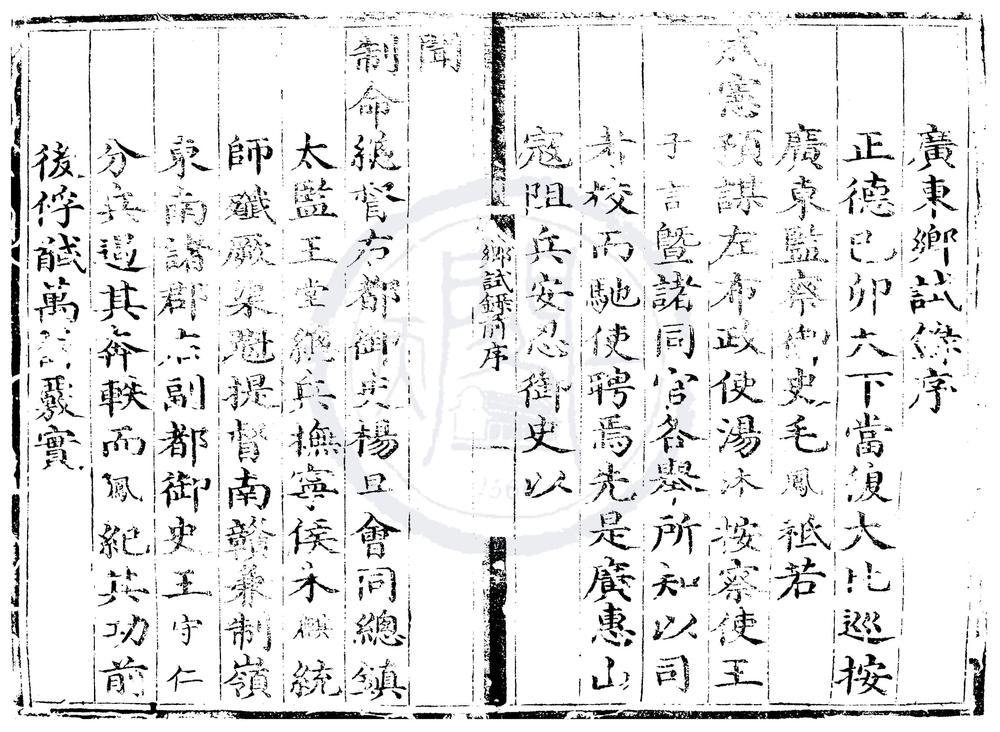 廣東鄉試錄序
正德己卯天下當復大比巡按
廣東監察御史毛鳳祗若
成憲預謀左布政使湯沐按察使王
子言曁諸同官各舉所知以司
考校而馳使聘焉先是廣惠山
寇阻兵安忍御史以
鄉試錄前序
聞
制命總督右都御史楊旦會同總鎮
太監王堂總兵撫寧侯朱麒統
師殲厥渠魁提督南贛兼制嶺
東南諸郡右副都御史王守仁
分兵遏其奔軼而鳳紀其功前
後俘馘萬計覈實